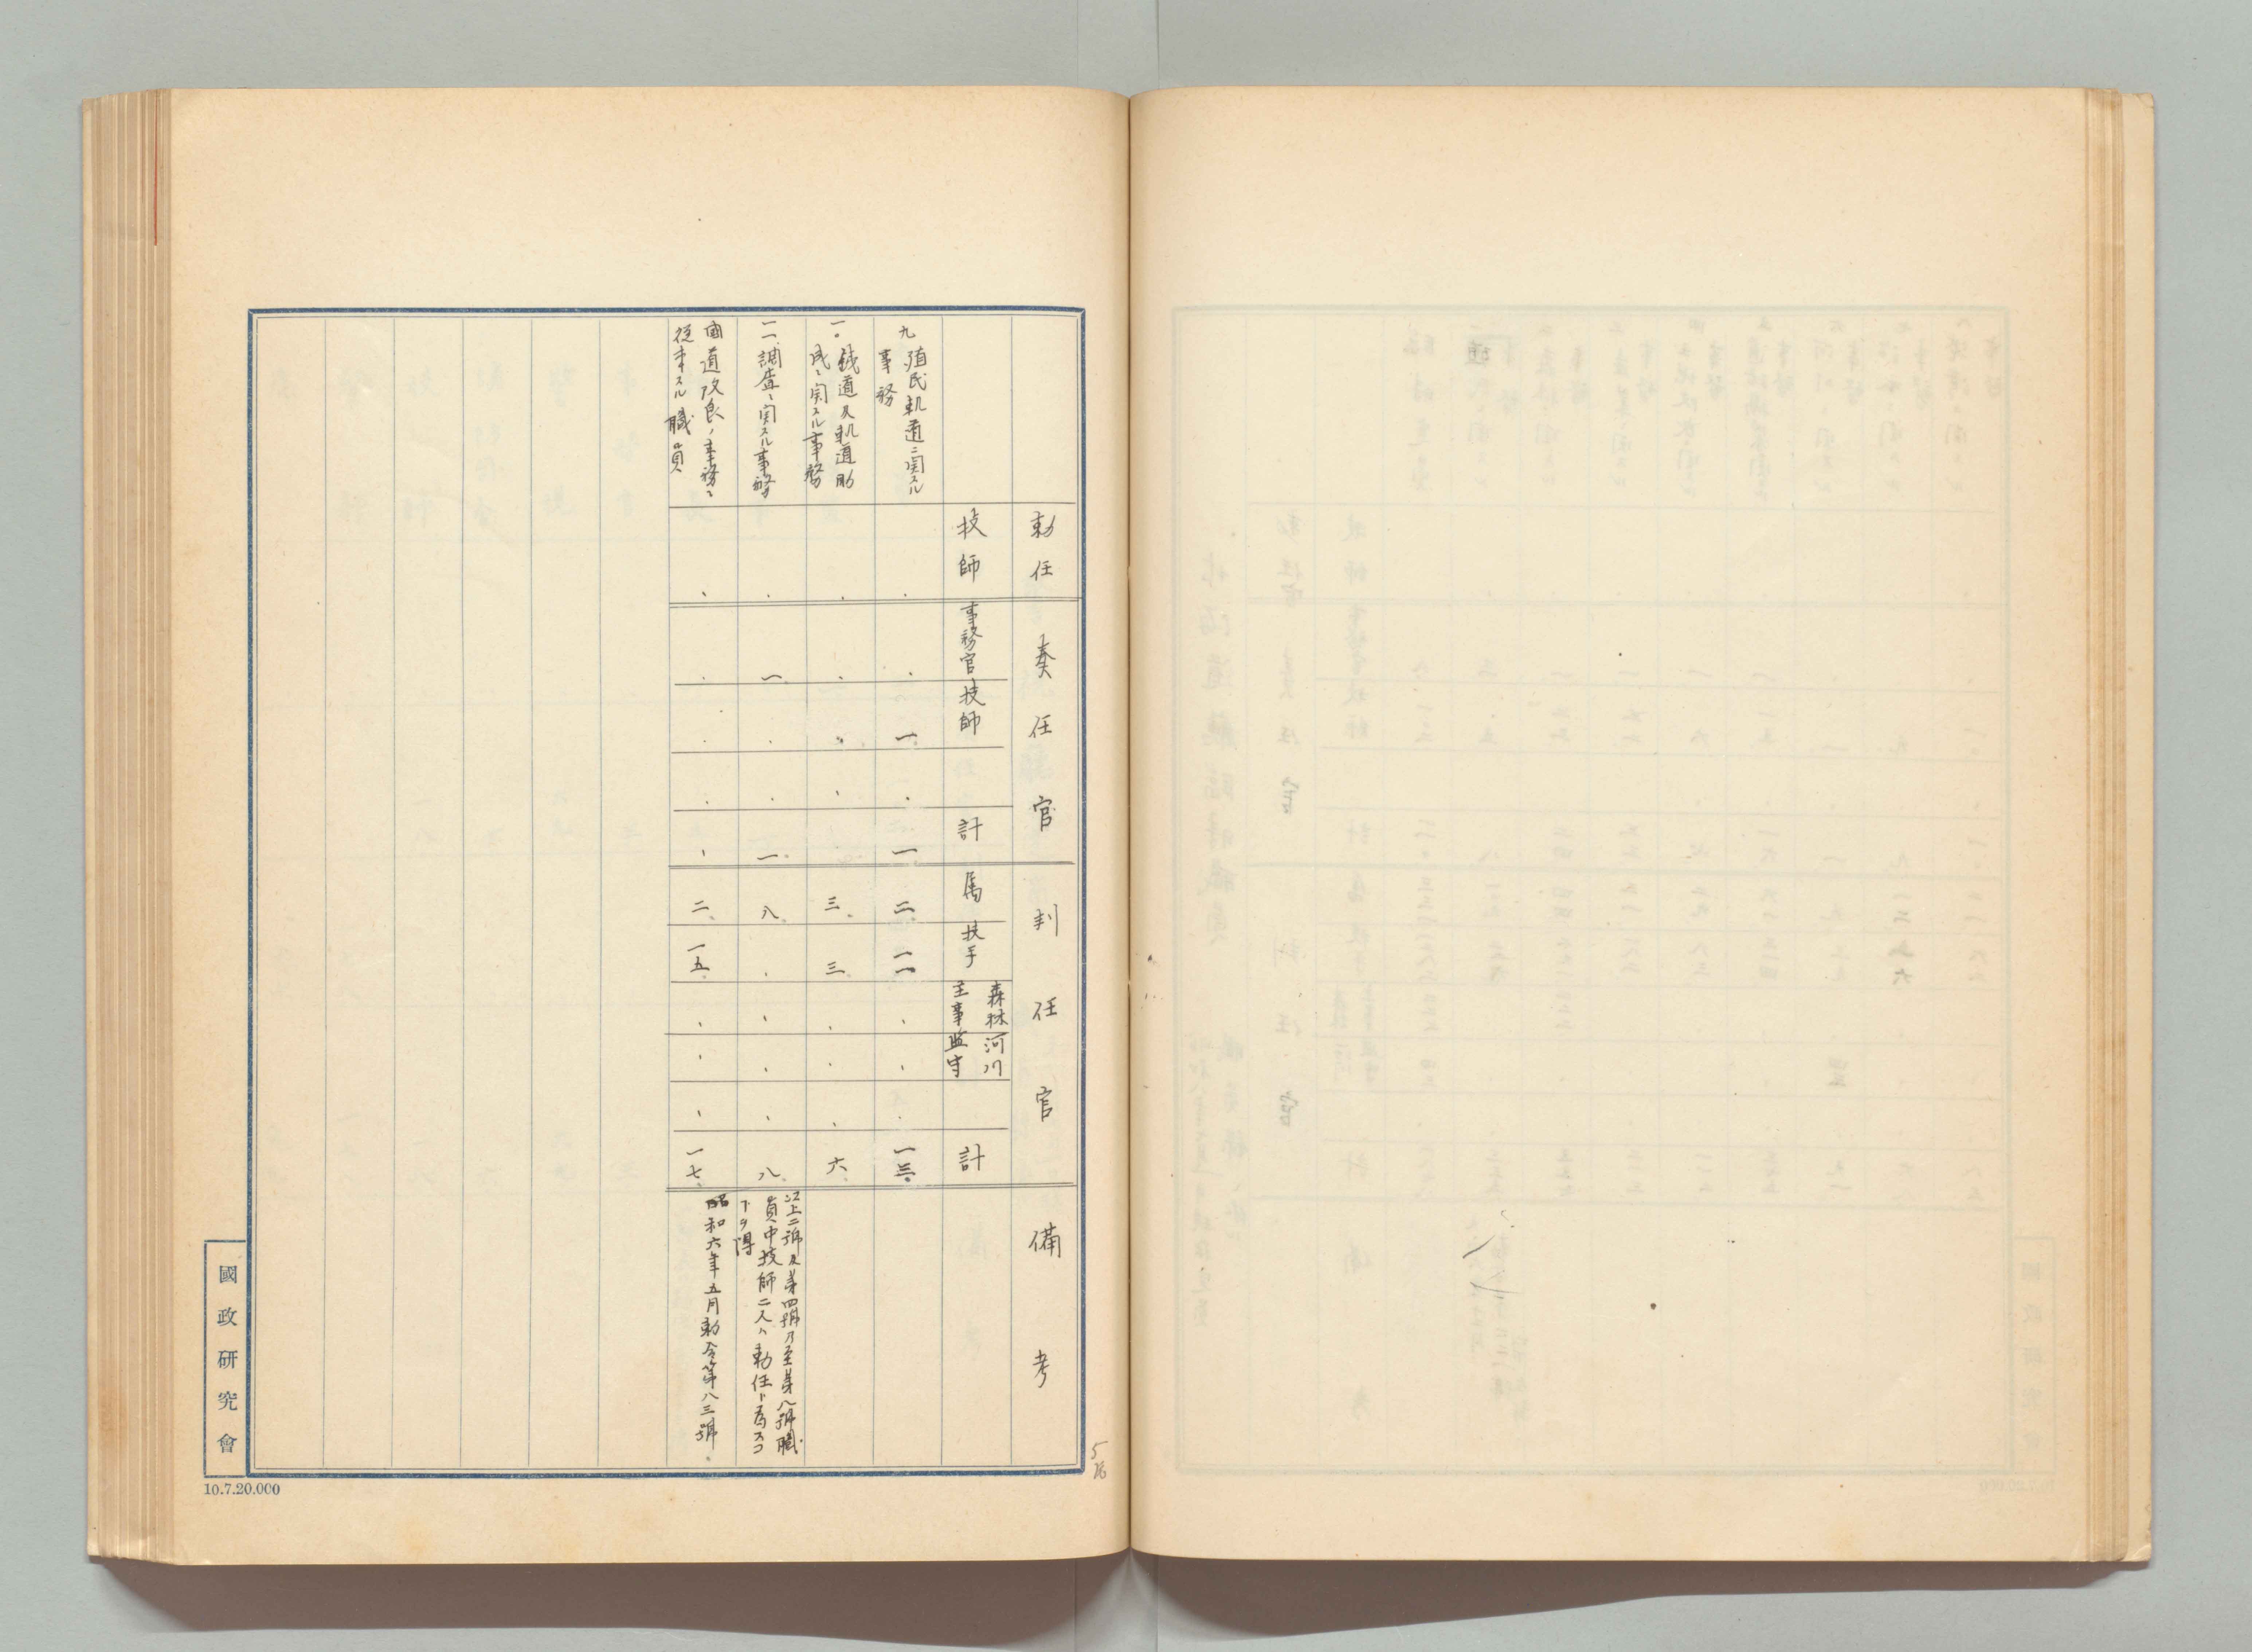 勅任
奏任官
判任官
備考
技師
事務官
技師
計
属
技手
森林主事
河川監守
計
九 殖民軌道ニ関スル
事務
一
一
二
一一
一三
一〇 鉄道及軌道助
成ニ関スル事務
三
三
六
一一 調査ニ関スル事務
一
一
八
八
以上二号及第四号乃至第八号職
員中技師二人ハ勅任ト為スコ
トヲ得
國道改良ノ事務ニ
従事スル職員
二
一五
一七
昭和六年五月勅令第八三号
國政研究會
10.7.20.000